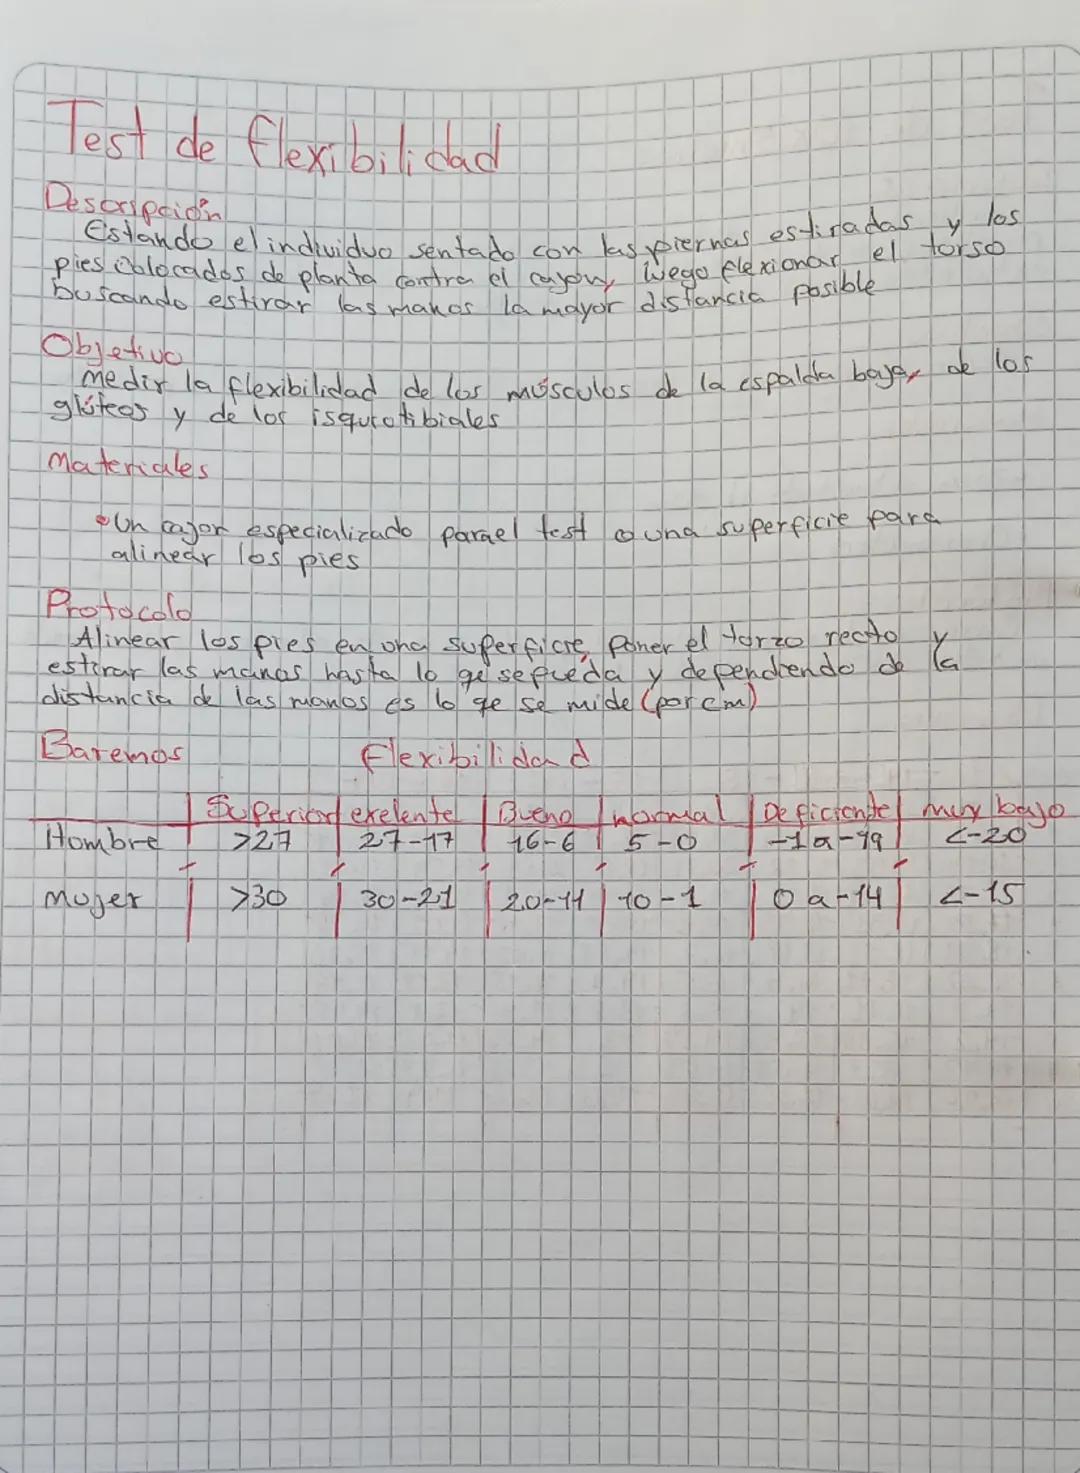 Test de flexibilidad
Descripción
Estando el individuo sentado con las piernas estiradas y los
pies colocados de planta contra el cajon, luego flexionar el torso
buscando estirar las manos la mayor distancia posible
Objetivo
Medir la flexibilidad de los músculos de la espalda baja, de los
glúteos y de los isquiotibiales
Materiales
• Un cajon especializado para el test o una superficie para
alinear los pies
Protocolo
Alinear los pies en una superficie, Poner el torzo recto y
estirar las manos hasta lo qe se pueda y dependiendo de la
distancia de las manos es lo qe se mide (por cm)
Baremos Flexibilidad
Superior exelente Bueno normal Deficiente muy bajo
Hombre >27 27-17 16-6 5-0 -1 a -19 <-20
Mujer >30 30-21 20-11 10-1 0 a -14 <-15